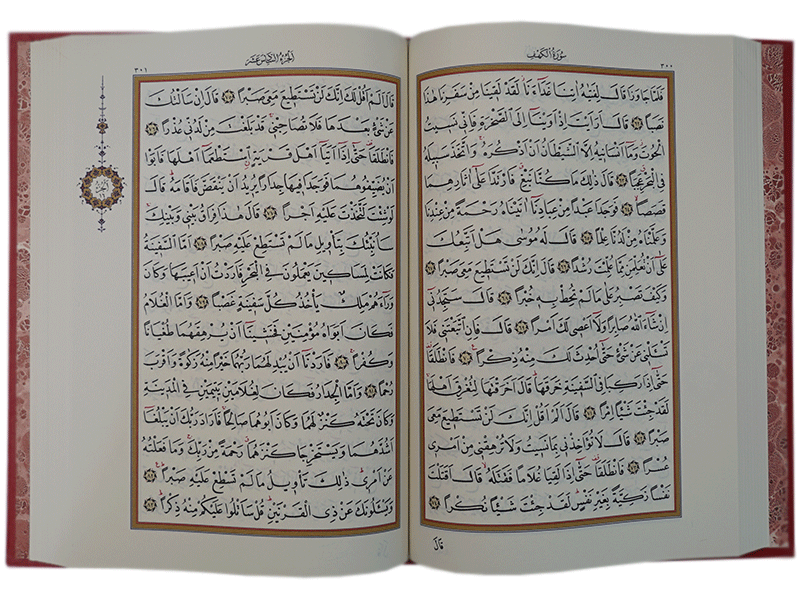 سُورَةُ الْكَهْفِ
٣٠٠
فَلَمَّا جَاوَزَا قَالَ لِفَتٰيهُ اٰتِنَا غَدَٓاءَنَاۘ لَقَدْ لَقٖينَا مِنْ سَفَرِنَا هٰذَا
نَصَبًا ﴿٦٢﴾ قَالَ اَرَاَيْتَ اِذْ اَوَيْنَٓا اِلَى الصَّخْرَةِ فَاِنّٖي نَسٖيتُ
الْحُوتَۘ وَمَٓا اَنْسَانٖيهُ اِلَّا الشَّيْطَانُ اَنْ اَذْكُرَهُۚ وَاتَّخَذَ سَبٖيلَهُ
فِي الْبَحْرِۗ عَجَبًا ﴿٦٣﴾ قَالَ ذٰلِكَ مَا كُنَّا نَبْغِۗ فَارْتَدَّا عَلٰٓى اٰثَارِهِمَا
قَصَصًاۙ ﴿٦٤﴾ فَوَجَدَا عَبْدًا مِنْ عِبَادِنَٓا اٰتَيْنَاهُ رَحْمَةً مِنْ عِنْدِنَا
وَعَلَّمْنَاهُ مِنْ لَدُنَّا عِلْمًا ﴿٦٥﴾ قَالَ لَهُ مُوسٰى هَلْ اَتَّبِعُكَ
عَلٰٓى اَنْ تُعَلِّمَنِ مِمَّا عُلِّمْتَ رُشْدًا ﴿٦٦﴾ قَالَ اِنَّكَ لَنْ تَسْتَطٖيعَ مَعِيَ صَبْرًا ﴿٦٧﴾
وَكَيْفَ تَصْبِرُ عَلٰى مَا لَمْ تُحِطْ بِهٖ خُبْرًا ﴿٦٨﴾ قَالَ سَتَجِدُنٖٓي
اِنْ شَٓاءَ اللّٰهُ صَابِرًا وَلَٓا اَعْصٖي لَكَ اَمْرًا ﴿٦٩﴾ قَالَ فَاِنِ اتَّبَعْتَنٖي فَلَا
تَسْـَٔلْنٖي عَنْ شَيْءٍ حَتّٰٓى اُحْدِثَ لَكَ مِنْهُ ذِكْرًا ﴿٧٠﴾ فَانْطَلَقَا
حَتّٰٓى اِذَا رَكِبَا فِي السَّفٖينَةِ خَرَقَهَاۜ قَالَ اَخَرَقْتَهَا لِتُغْرِقَ اَهْلَهَاۚ
لَقَدْ جِئْتَ شَيْـًٔا اِمْرًا ﴿٧١﴾ قَالَ اَلَمْ اَقُلْ اِنَّكَ لَنْ تَسْتَطٖيعَ مَعِيَ
صَبْرًا ﴿٧٢﴾ قَالَ لَا تُؤَاخِذْنٖي بِمَا نَسٖيتُ وَلَا تُرْهِقْنٖي مِنْ اَمْرٖي
عُسْرًا ﴿٧٣﴾ فَانْطَلَقَا حَتّٰٓى اِذَا لَقِيَا غُلَامًا فَقَتَلَهُۙ قَالَ اَقَتَلْتَ
نَفْسًا زَكِيَّةً بِغَيْرِ نَفْسٍۜ لَقَدْ جِئْتَ شَيْـًٔا نُكْرًا ﴿٧٤﴾
قَالَ
اَلْجُزْءُ السَّادِسَ عَشَرَ
٣٠١
قَالَ اَلَمْ اَقُلْ لَكَ اِنَّكَ لَنْ تَسْتَطٖيعَ مَعِيَ صَبْرًا ﴿٧٥﴾ قَالَ اِنْ سَاَلْتُكَ
عَنْ شَيْءٍ بَعْدَهَا فَلَا تُصَاحِبْنٖيۚ قَدْ بَلَغْتَ مِنْ لَدُنّٖي عُذْرًا ﴿٧٦﴾
فَانْطَلَقَا حَتّٰٓى اِذَٓا اَتَيَٓا اَهْلَ قَرْيَةٍ اسْتَطْعَمَٓا اَهْلَهَا فَاَبَوْا
اَنْ يُضَيِّفُوهُمَا فَوَجَدَا فٖيهَا جِدَارًا يُرٖيدُ اَنْ يَنْقَضَّ فَاَقَامَهُۜ قَالَ
لَوْ شِئْتَ لَتَّخَذْتَ عَلَيْهِ اَجْرًا ﴿٧٧﴾ قَالَ هٰذَا فِرَاقُ بَيْنٖي وَبَيْنِكَۚ
سَاُنَبِّئُكَ بِتَأْوٖيلِ مَا لَمْ تَسْتَطِعْ عَلَيْهِ صَبْرًا ﴿٧٨﴾ اَمَّا السَّفٖينَةُ
فَكَانَتْ لِمَسَاكٖينَ يَعْمَلُونَ فِي الْبَحْرِ فَاَرَدْتُ اَنْ اَعٖيبَهَا وَكَانَ
وَرَٓاءَهُمْ مَلِكٌ يَأْخُذُ كُلَّ سَفٖينَةٍ غَصْبًا ﴿٧٩﴾ وَاَمَّا الْغُلَامُ
فَكَانَ اَبَوَاهُ مُؤْمِنَيْنِ فَخَشٖينَٓا اَنْ يُرْهِقَهُمَا طُغْيَانًا
وَكُفْرًاۚ ﴿٨٠﴾ فَاَرَدْنَٓا اَنْ يُبْدِلَهُمَا رَبُّهُمَا خَيْرًا مِنْهُ زَكٰوةً وَاَقْرَبَ
رُحْمًا ﴿٨١﴾ وَاَمَّا الْجِدَارُ فَكَانَ لِغُلَامَيْنِ يَتٖيمَيْنِ فِي الْمَدٖينَةِ
وَكَانَ تَحْتَهُ كَنْزٌ لَهُمَا وَكَانَ اَبُوهُمَا صَالِحًاۚ فَاَرَادَ رَبُّكَ اَنْ يَبْلُغَٓا
اَشُدَّهُمَا وَيَسْتَخْرِجَا كَنْزَهُمَاۗ رَحْمَةً مِنْ رَبِّكَۚ وَمَا فَعَلْتُهُ
عَنْ اَمْرٖيۜ ذٰلِكَ تَأْوٖيلُ مَا لَمْ تَسْطِعْ عَلَيْهِ صَبْرًاۜ ﴿٨٢﴾
وَيَسْـَٔلُونَكَ عَنْ ذِي الْقَرْنَيْنِۜ قُلْ سَاَتْلُوا عَلَيْكُمْ مِنْهُ ذِكْرًاۜ ﴿٨٣﴾